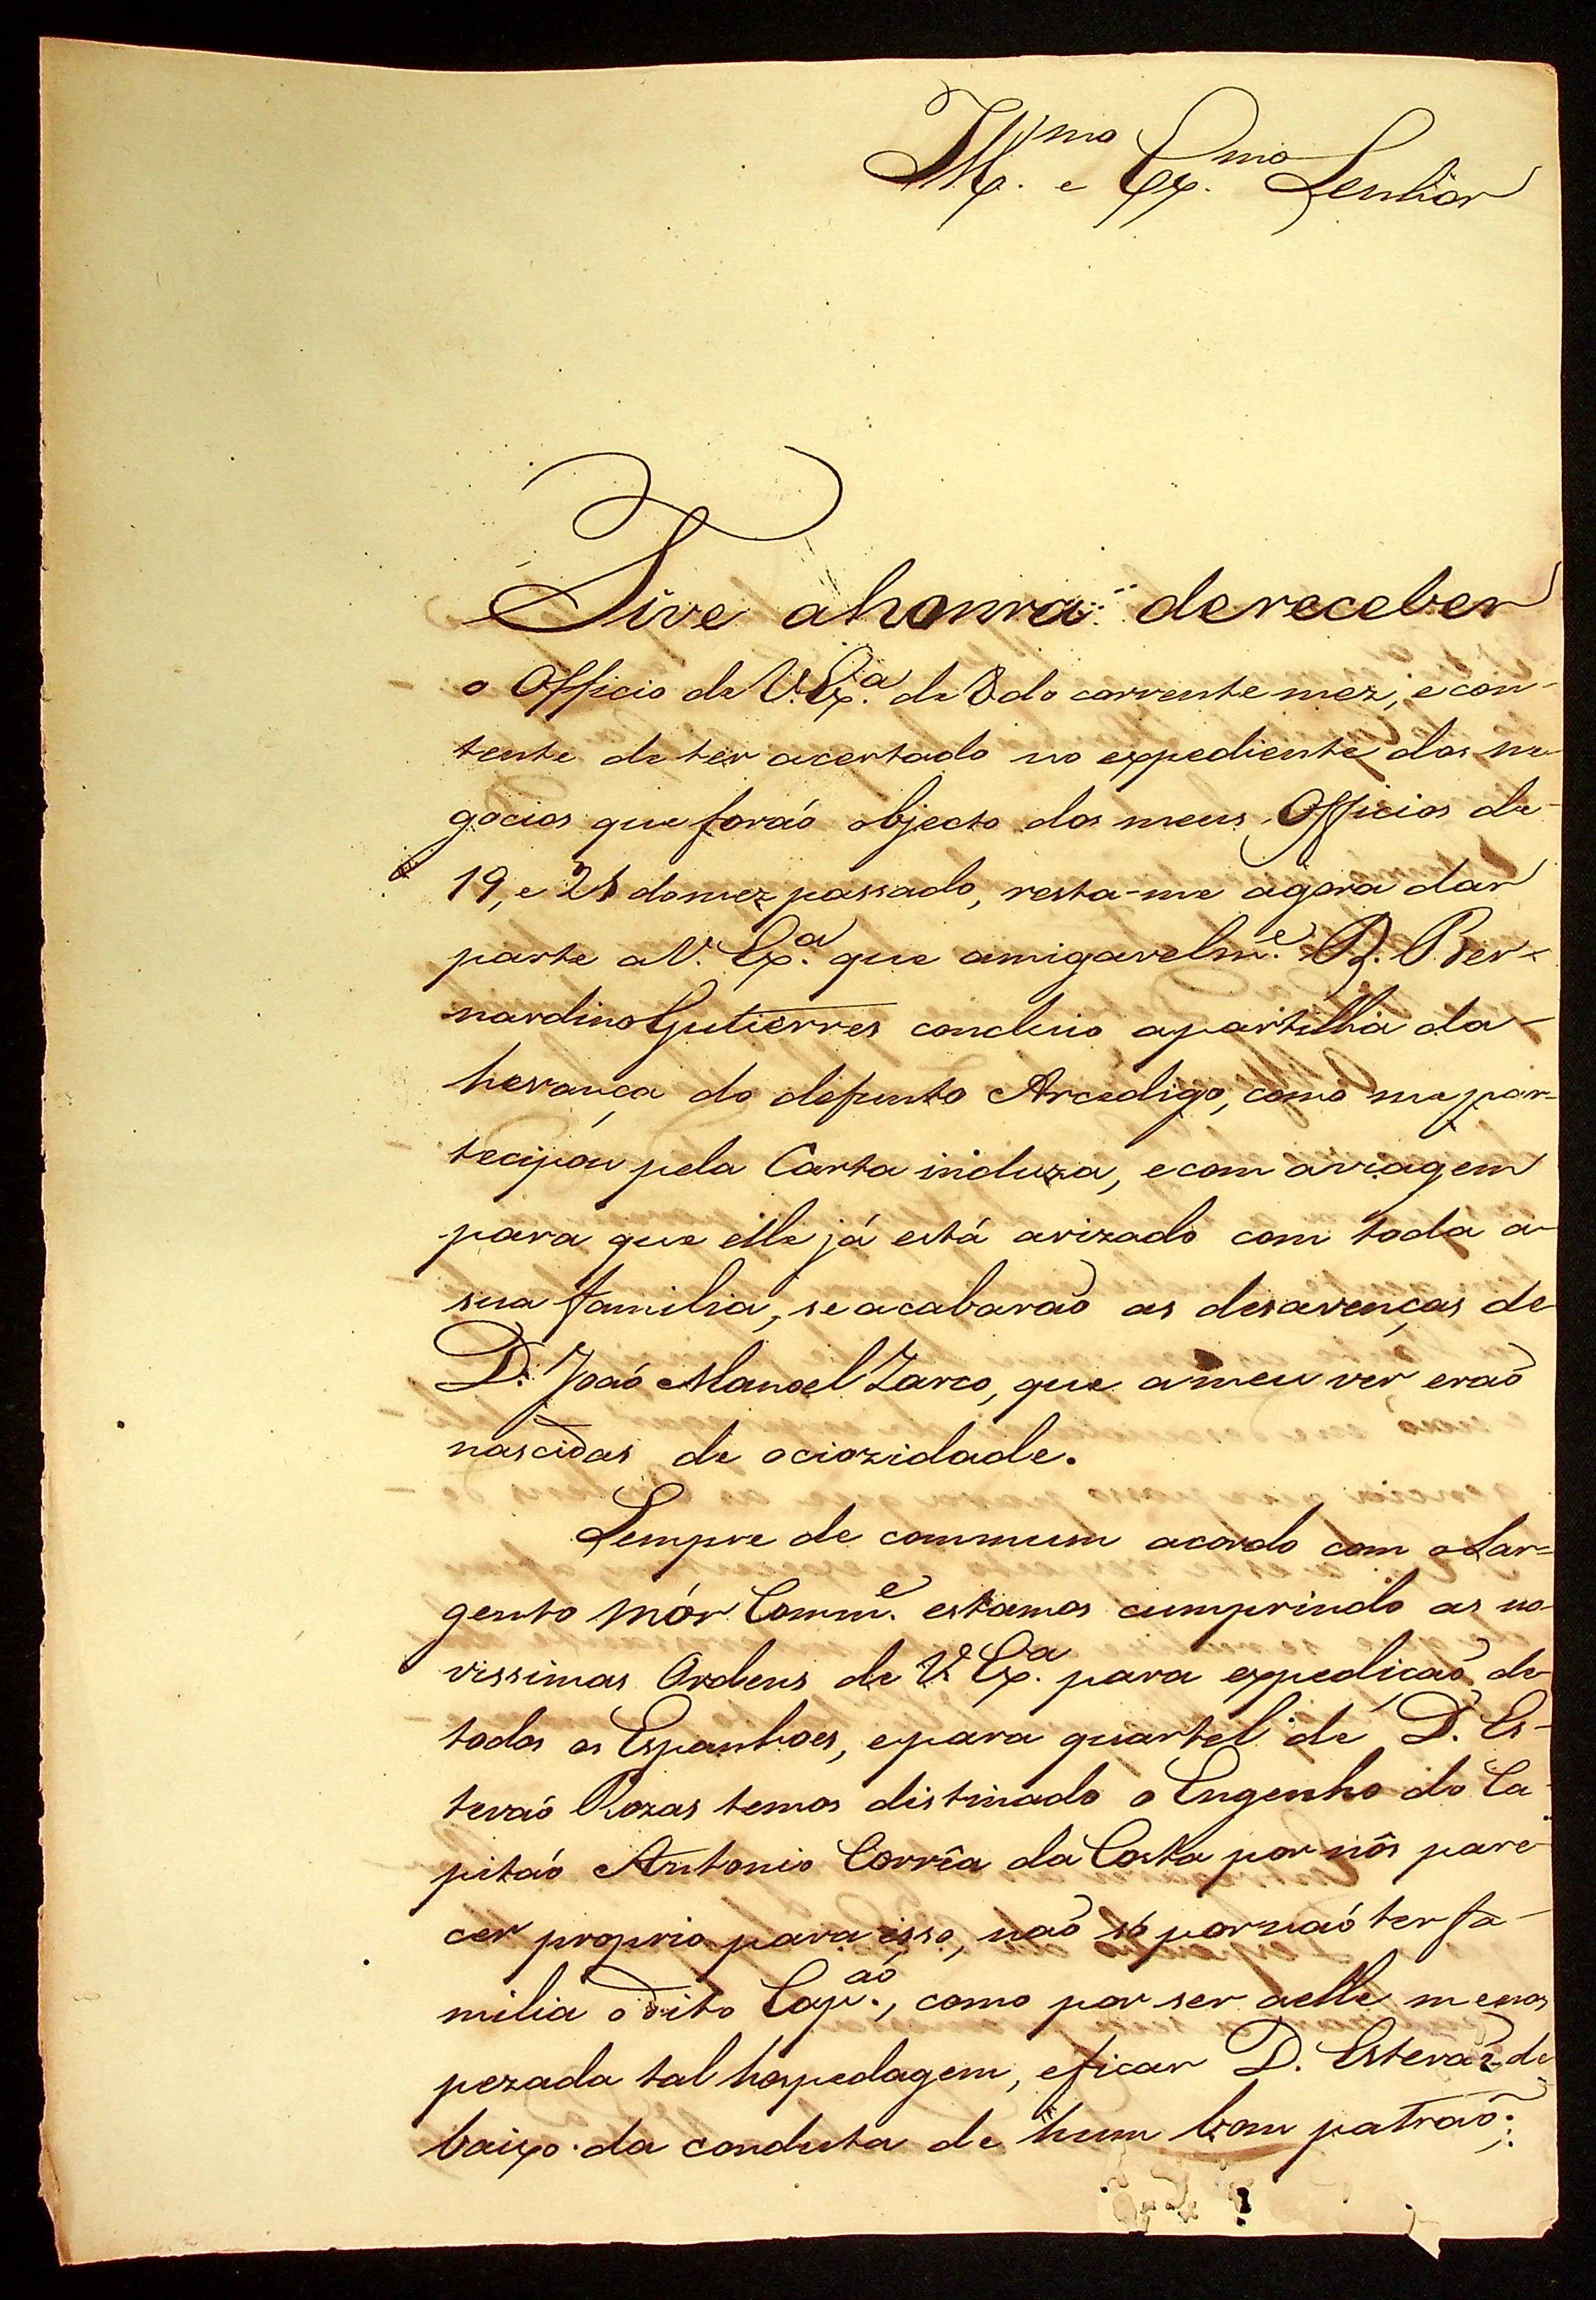 Ill.mo e Ex.mo Senhor
Tive ahonra dereceber
o Officio de V. Ex.a de 8 do corrente mez, e con-
tente de ter acertado no expediente dos ne-
gocios que foraõ objecto dos meus Officios de
19, e do mez passado, resta-me agora dar
parte a V. Ex.a que amigavelm.e D. Ber-
nardino Gutierres concluio apartilha da
herança do defunto Arcediago, como me par-
tecipou pela Carta incluza, ecom aviagem
para que elle já está avizado com toda a
sua familia, se acabaraõ as desavenças de
D. Joaõ Manoel Zarco, que ameu ver eraõ
nascidas de ociozidade.
Sempre de commum acordo com o Sar-
gento mór Comm.e estamos cumprindo as no-
vissimas Ordens de V. Ex.a para expediçaõ de
todos os Espanhoes, epara quartel de D. Es-
tevaõ Rozas temos distinado o Engenho do Ca-
pitaõ Antonio Corrêa da Costa por nôs pare-
cer proprio para isso, naõ só por naõ ter fa-
milia o dito Cap.aõ, como por ser aelle menos
pezada tal hospedagem, eficar D. Estevaõ de
baixo da conduta de hum bom patraõ;